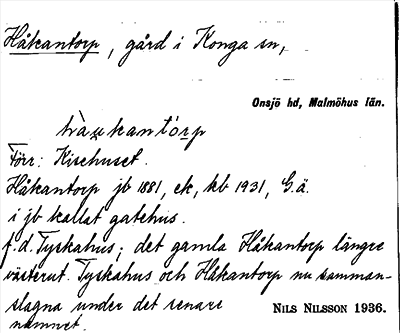 Håkantorp, gård i Konga sn,
Onsjö hd, Malmöhus län.
Förr: Kisehuset.
Håkantorp jb 1881, ek, kb 1931, G.ä.
i jb kallat gatehus.
f.d. Tyskahus; det gamla Håkantorp längre
västerut. Tyskahus och Håkantorp nu samman-
slagna under det senare
namnet.
NILS NILSSON 1936.